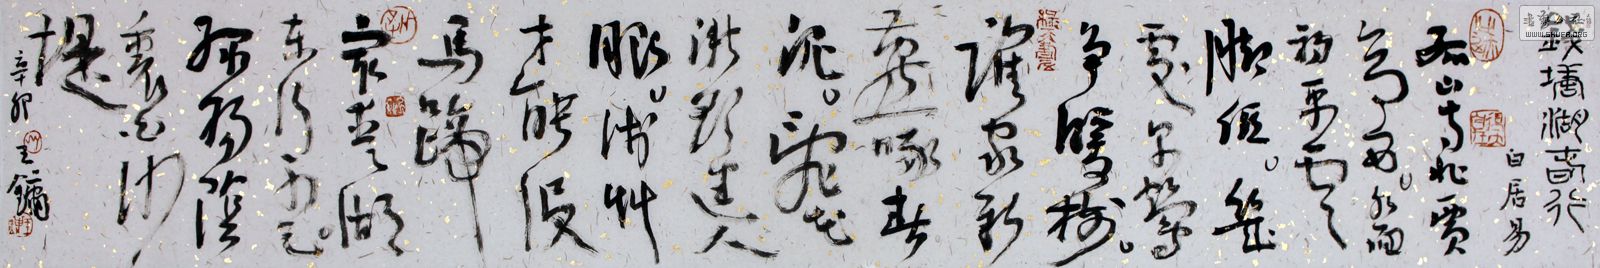 錢塘湖春行
白居易
孤山寺北賈
亭西。水面
初平雲
脚低。幾
處早鶯
爭暖樹。
誰家新
燕啄春
泥。亂花
漸欲迷人
眼。淺艸
才能没
馬蹄
最愛湖
東行不足。
綠楊陰
裏白沙
堤
辛卯 王鏞